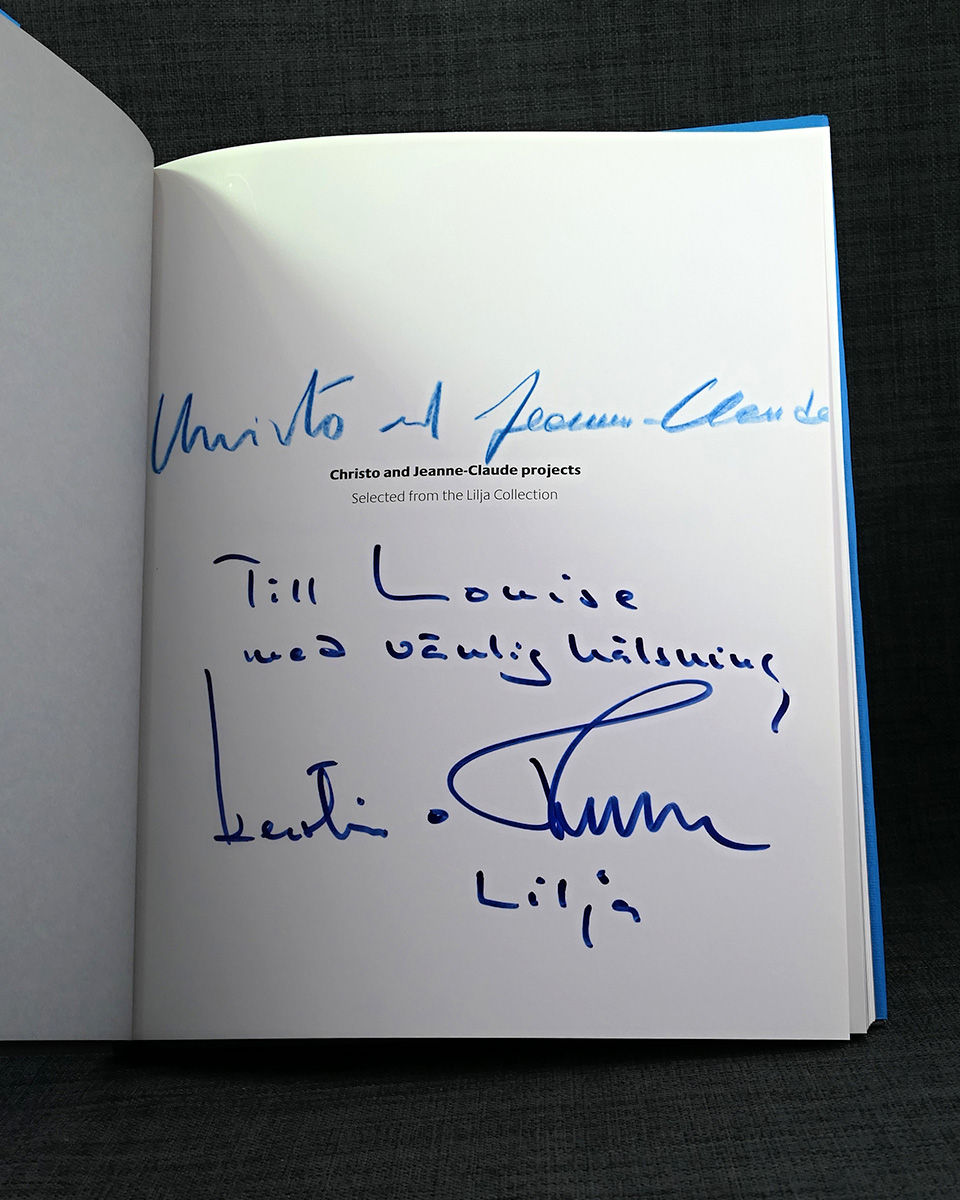 Christo and Jeanne-Claude
Christo and Jeanne-Claude projects
Selected from the Lilja Collection
Till Louise
med vänlig hälsning,
Kerstin o
Lilja